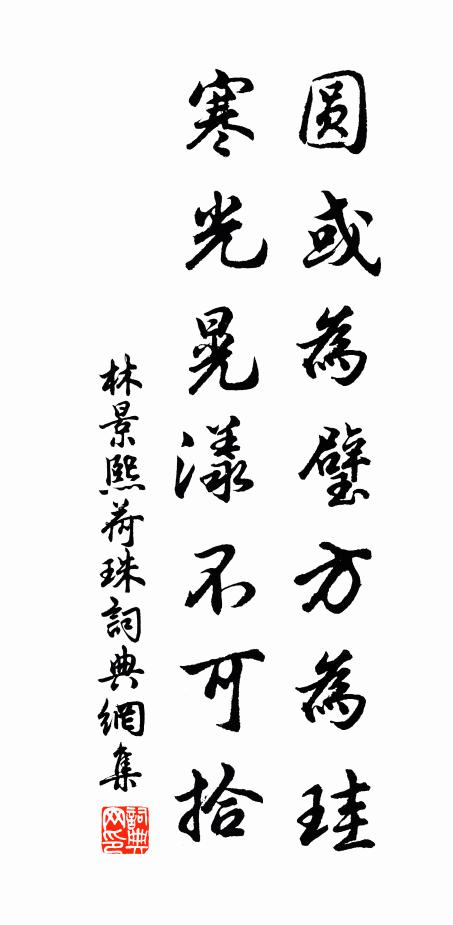 圆或為璧方為珪
寒光晃漾不可拾
林景熙荷珠詞典網集
詞典
网印